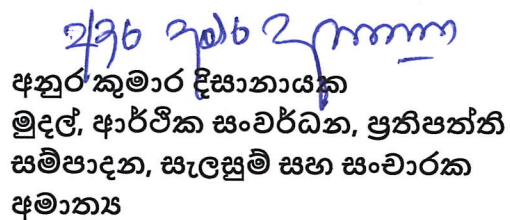 අනුර කුමාර දිසානායක
මුදල්, ආර්ථික සංවර්ධන, ප්‍රතිපත්ති
සම්පාදන, සැලසුම් සහ සංචාරක
අමාත්‍ය